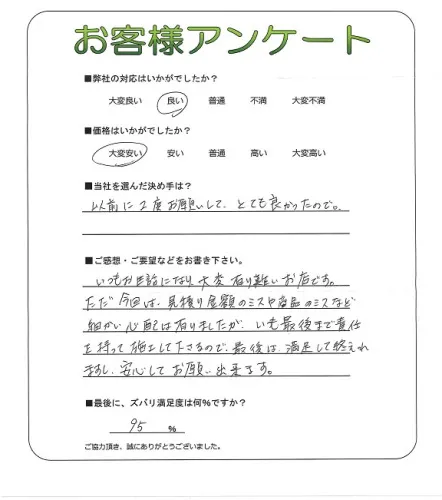 お客様アンケート
■弊社の対応はいかがでしたか?
大変良い 良い 普通 不満 大変不満
■価格はいかがでしたか?
大変安い 安い 普通 高い 大変高い
■当社を選んだ決め手は?
以前に2度お願いして、とても良かったので。
■ご感想・ご要望などをお書き下さい。
いつもお世話になり大変有り難いお店です。
ただ今回は、見積り金額のミスや商品のミスなど
細かい心配は有りましたが、いつも最後まで責任
を持って施工して下さるので、最後は満足して終えれ
ますし、安心してお願い出来ます。
■最後に、ズバリ満足度は何%ですか?
95 %
ご協力頂き、誠にありがとうございました。